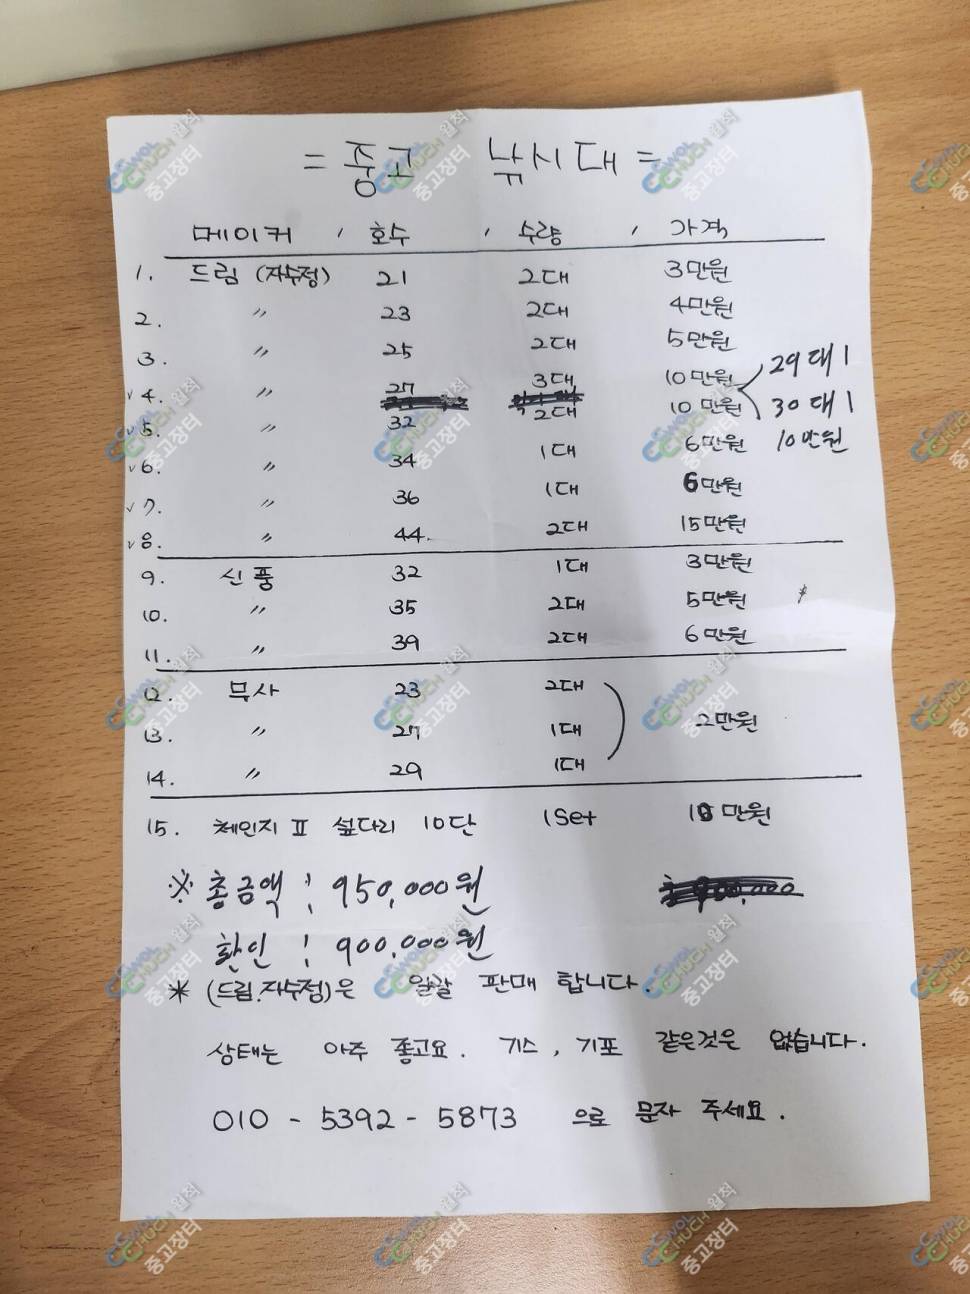 = 중고 낚시대 =
메이커 , 호수 , 수량 , 가격
1. 드림 (자수정) 21 2대 3만원
2. 〃 23 2대 4만원
3. 〃 25 2대 5만원
√4. 〃 27 3대 10만원 29대 1
√5. 〃 32 2대 10만원 30대 1
√6. 〃 34 1대 6만원 10만원
√7. 〃 36 1대 6만원
√8. 〃 44. 2대 15만원
9. 신풍 32 1대 3만원
10. 〃 35 2대 5만원
11. 〃 39 2대 6만원
12. 무사 23 2대
13. 〃 27 1대 2만원
14. 〃 29 1대
15. 체인지 Ⅱ 섶다리 10단 1Set 만원
※ 총금액 : 950,000원
할인 : 900,000원
* (드림.자수정)은 일괄 판매 합니다.
상태는 아주 좋고요. 기스, 기포 같은것은 없습니다.
010 - 5392 - 5873 으로 문자 주세요.
CHUCH 원척
중고장터